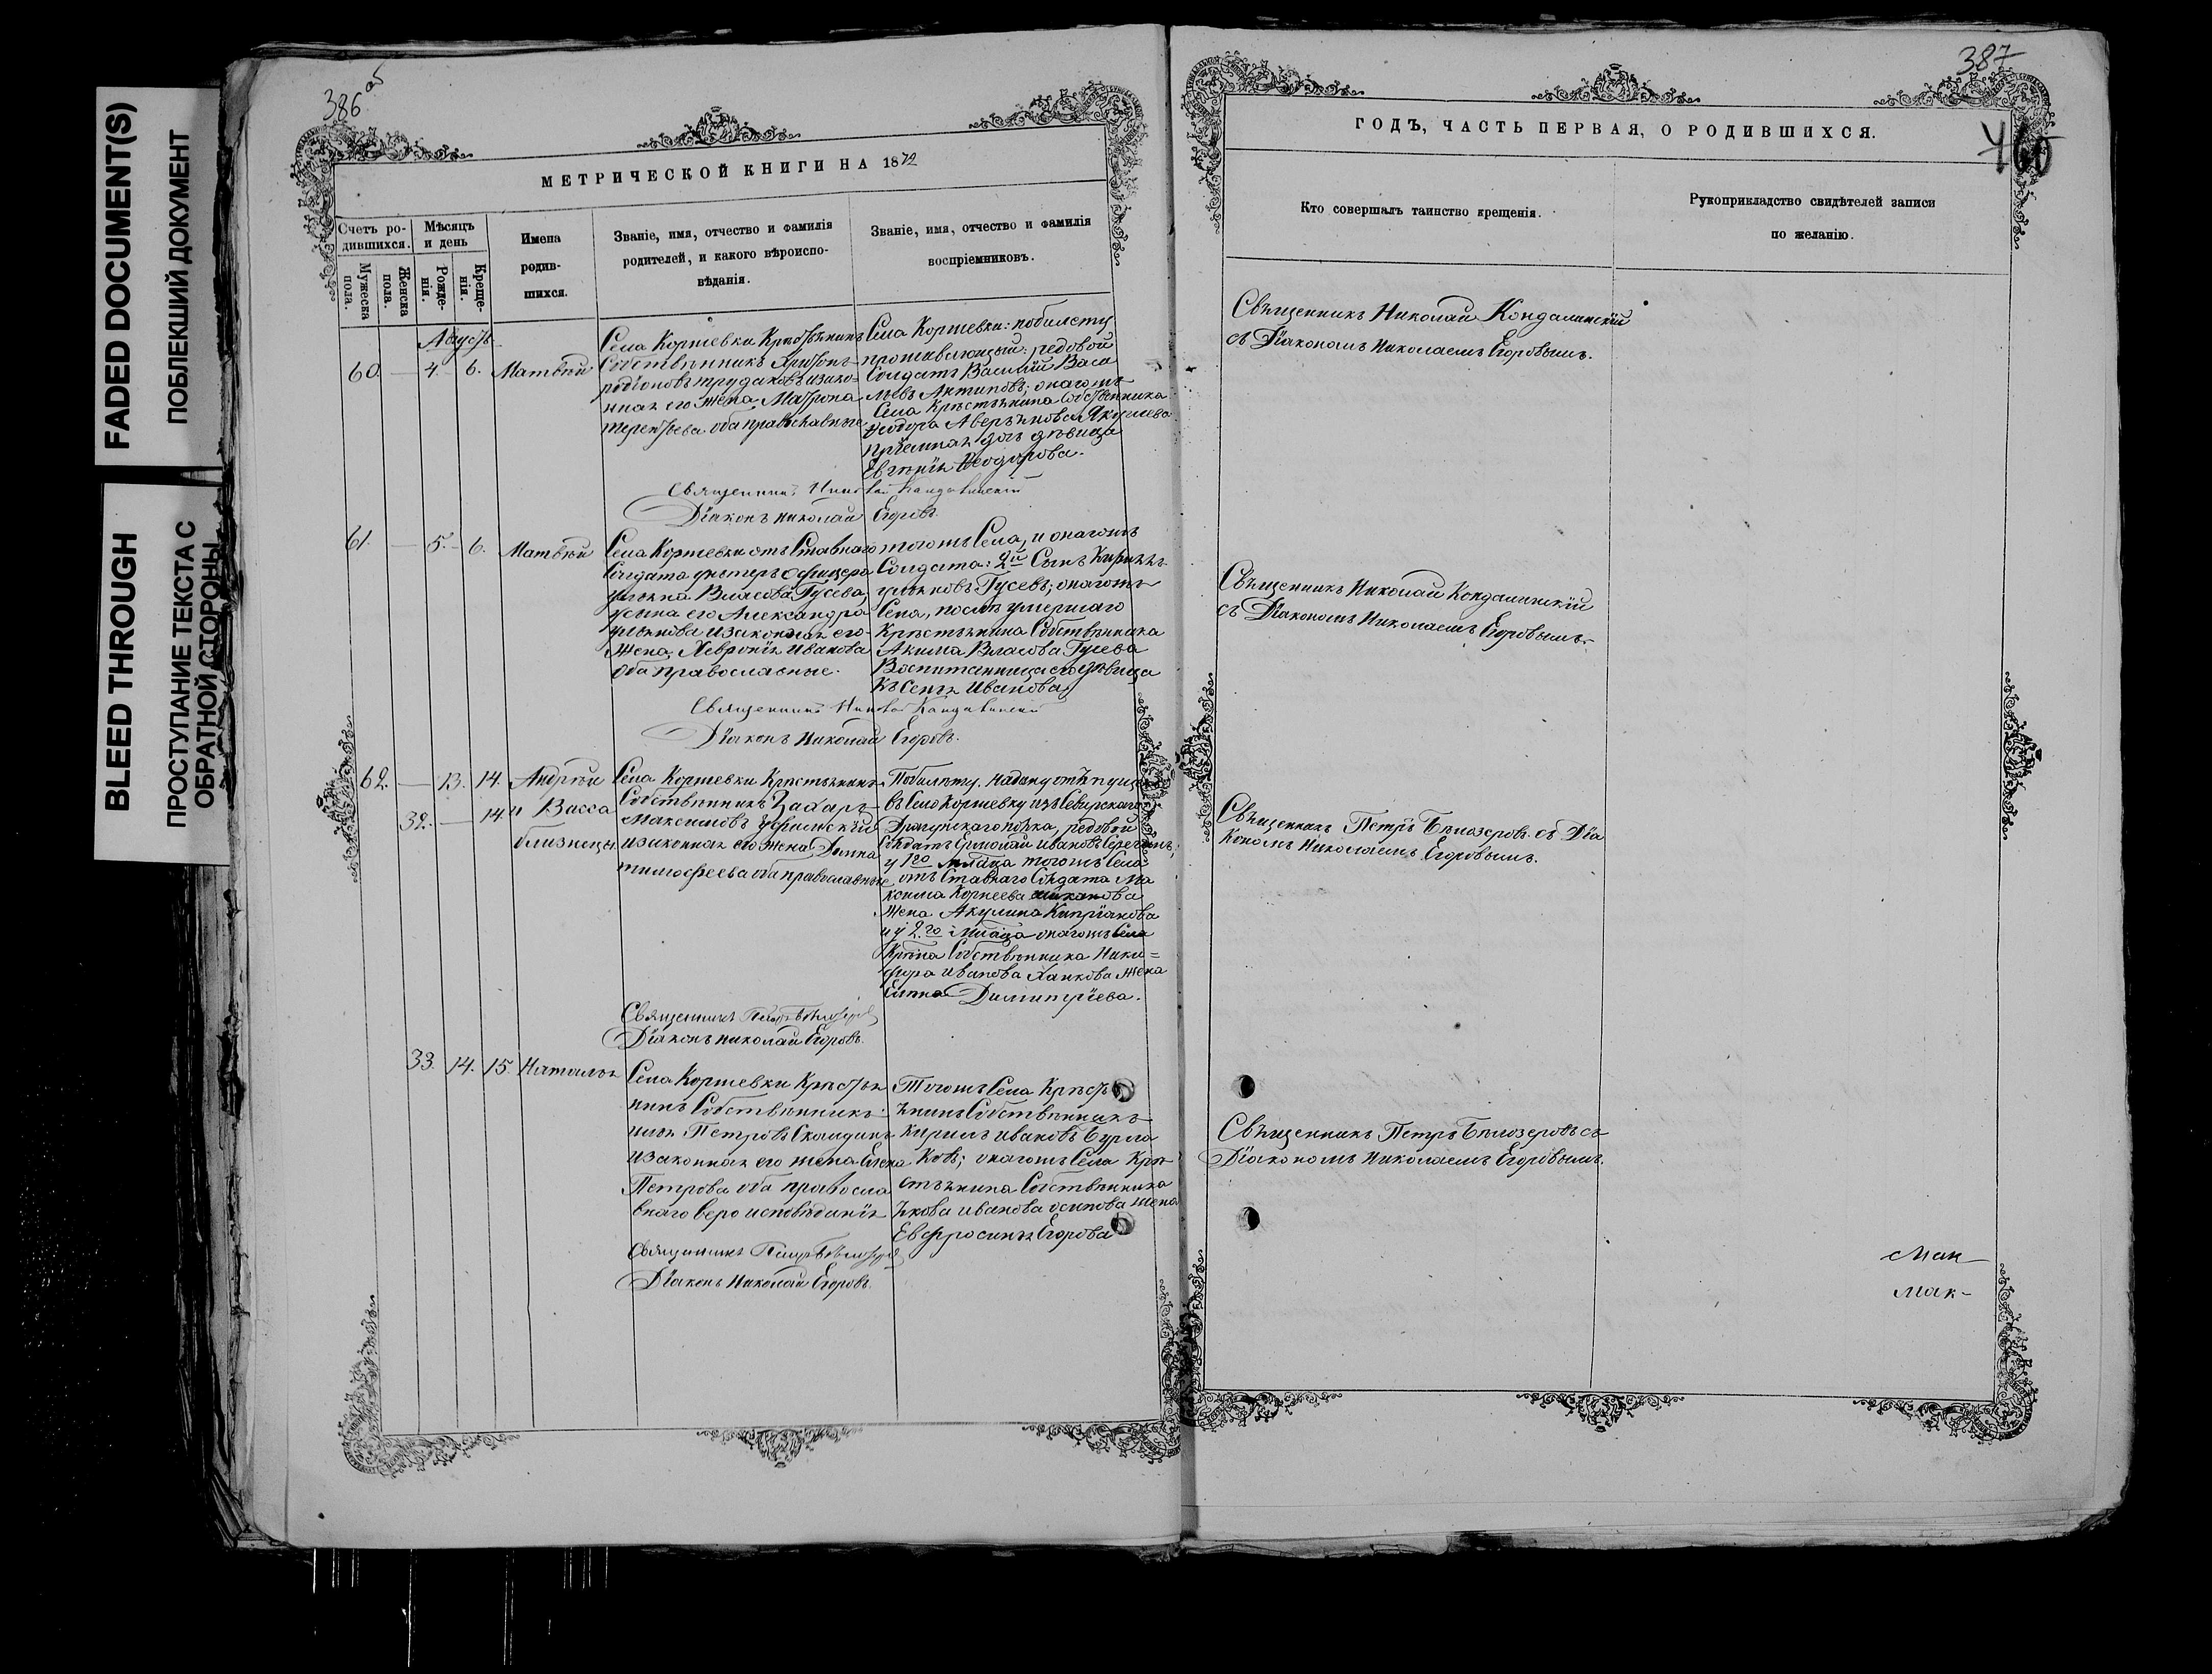 FADED DOCUMENT(S)
ПОБЛЕКШИЙ ДОКУМЕНТ
BLEED THROUGH
ПРОСТУПАНИЕ ТЕКСТА С
ОБРАТНОЙ СТОРОНЫ
386 об
МЕТРИЧЕСКОЙ КНИГИ НА 1872
Счетъ ро-
дившихся.
Мужеска
пола.
Женска
пола.
Мѣсяцъ
и день
Рожде-
нія.
Креще-
нія.
Имена
родив-
шихся.
Званіе, имя, отчество и фамилія
родителей, и какого вѣроиспо-
вѣданія.
Званіе, имя, отчество и фамилія
воспріемниковъ.
Августъ
60. — 4. 6. Матвѣй
Села Коржевки Крѣстьянинъ
Собственникъ
родіоновъ трудаковъ изако-
нная его жена Матрона
терентьева оба православные
Села Коржевки: побилету
проживающій: редовой
Солдатъ Василій Васи
льевъ Антиповъ; онагожъ
Села Крѣстьянина Собственника
Ѳеодора Аверьянова
пріемная дочь дѣвица
Евгенія Ѳеодорова.
Священникъ Николай Кандалинскій
Діаконъ Николай Егоровъ.
61. — 5. — 6. Матвѣй
Села Коржевки отъ Ставнаго
Солдата унтеръ Офицера
ульяна Власова Гусева,
усына его Александра
ульянова изаконная его
Жена Хевронія Иванова
оба православные.
тогожъ Села, и онагожъ
Солдата: 2й Сынъ Кирилъ
ульяновъ Гусевъ; онагожъ
Села, послѣ умершаго
Крѣстьянина Собственника
Акима Власова Гусева
Воспитанница его дѣвица
Къ Сенія Иванова
Священникъ Николай Кандалинскій
Діаконъ Николай Егоровъ.
62. — 13. 14. Андрѣй
32. — 14. и Васса
близнецы
Села Коржевки Крѣстьянинъ
Собственникъ Захаръ
Максимовъ Уфимскій
изаконная его жена Домна
тимофеева оба православные
Побилету, надому отъ пуще
въ Село Коржевку изъ Северскаго
Драгунскаго полка, редовой
Солдатъ Ермолай Ивановъ Серегинъ;
у 1го млаца тогожъ Села
отъ Ставнаго Солдата Ма
ксима Корнеева
жена Акулина Кипріянова
и у 2.го млаца онагожъ Села
Крѣна Собственника Ники=
фора Иванова Ханкова жена
Елена Димитріева.
Священникъ Петръ Бѣлозеровъ
Діаконъ Николай Егоровъ.
33. 14. 15. Наталья
Села Коржевки Крѣстья
нинъ Собственникъ
илья Петровъ Скалдинъ
изаконная его жена Елена
Петрова оба правосла
внаго вероисповѣданія
Тогожъ Села Крѣсть
янинъ Собственникъ
Кирилъ Ивановъ Бурла
ковъ; онагожъ Села Крѣ
стьянина Собственника
якова иванова осипова жена
Евфросинья Егорова
Священникъ Петръ Бѣлозеровъ
Діаконъ Николай Егоровъ.
387
ГОДЪ, ЧАСТЬ ПЕРВАЯ, О РОДИВШИХСЯ.
Кто совершалъ таинство крещенія.
Рукоприкладство свидѣтелей записи
по желанію.
Свѣщенникъ Николай Кондалинскій
съ Діакономъ Николаемъ Егоровымъ.
Свѣщенникъ Николай Кондалинскій
съ Діакономъ Николаемъ Егоровымъ.
Свѣщенникъ Петръ Бѣлозеровъ съ Діа
Кономъ Николаемъ Егоровымъ.
Свѣщенникъ Петръ Бѣлозеровъ съ
Діакономъ Николаемъ Егоровымъ.